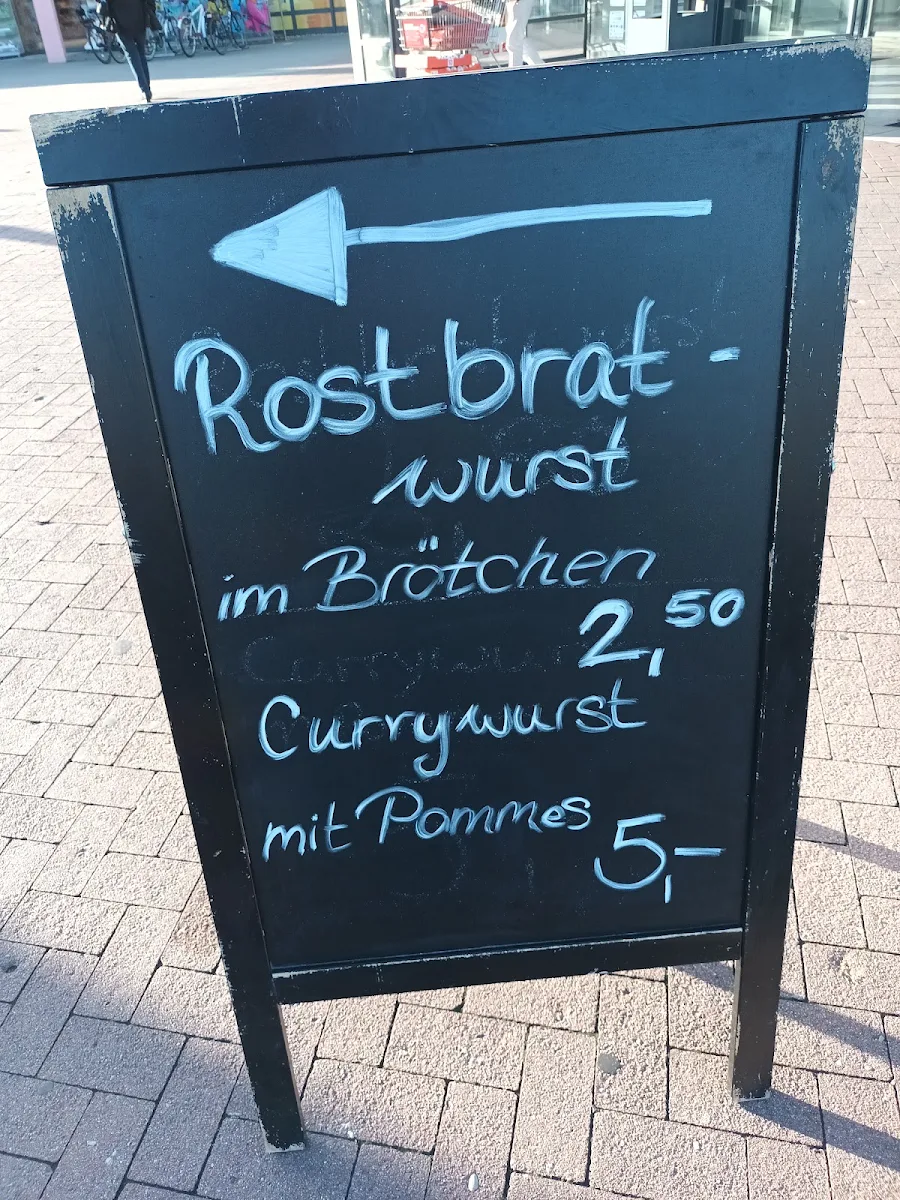 Rostbrat-
wurst
im Brötchen
2,50
Currywurst
mit Pommes
5,-